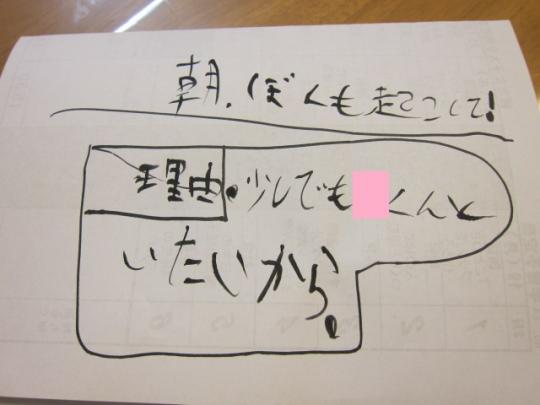 朝、ぼくも起こして!
理由。少しでも くんと
いたいから。